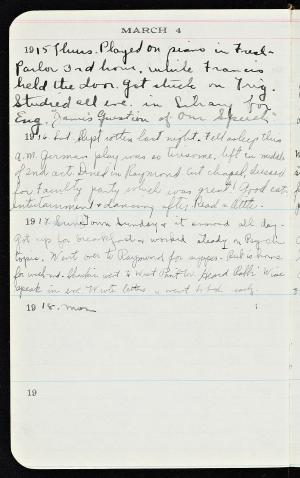 MARCH 4
1915 Thurs. Played on piano in Fresh-
Parlor 3rd hour. while Francis
held the door. Got stuck on Trig.
Studied all eve. in Library for
Eng. "Question of Our Speech"
1916 Sat. Slept rotten last night. Fell asleep this
a.m. German play was so tiresome, left in middle
of 2nd act. Dined in Raymond cut chapel, dressed
for Faculty party which was great! Good eats,
entertainment & dancing after. Read a little.
1917 Sun. Town Sunday & it snowed all day.
Got up for breakfast & worked steady on Psych
topic. Went over to Raymond for supper.
for week-end. went to West Point. Heard Rabbi Wise
speak in eve. Wrote letters & went to bed early.
1918. Mon
19